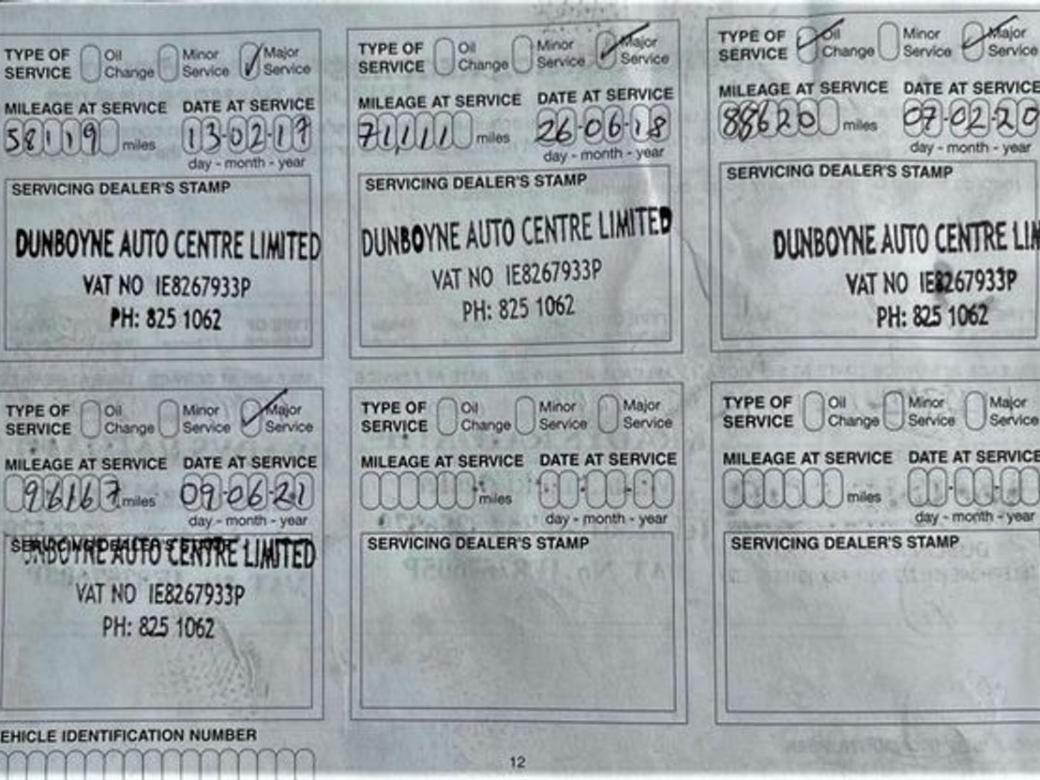 TYPE OF SERVICE Oil Change Minor Service Major Service
MILEAGE AT SERVICE DATE AT SERVICE
58119 miles 13-02-17
day - month - year
SERVICING DEALER'S STAMP
DUNBOYNE AUTO CENTRE LIMITED
VAT NO IE8267933P
PH: 825 1062
TYPE OF SERVICE Oil Change Minor Service Major Service
MILEAGE AT SERVICE DATE AT SERVICE
71,111 miles 26-06-18
day - month - year
SERVICING DEALER'S STAMP
DUNBOYNE AUTO CENTRE LIMITED
VAT NO IE8267933P
PH: 825 1062
TYPE OF SERVICE Oil Change Minor Service Major Service
MILEAGE AT SERVICE DATE AT SERVICE
88620 miles 07-02-20
day - month - year
SERVICING DEALER'S STAMP
DUNBOYNE AUTO CENTRE LIM
VAT NO IE8267933P
PH: 825 1062
TYPE OF SERVICE Oil Change Minor Service Major Service
MILEAGE AT SERVICE DATE AT SERVICE
96167 miles 09-06-21
day - month - year
SERVICING DEALER'S STAMP
DUNBOYNE AUTO CENTRE LIMITED
VAT NO IE8267933P
PH: 825 1062
TYPE OF SERVICE Oil Change Minor Service Major Service
MILEAGE AT SERVICE DATE AT SERVICE
miles
day - month - year
SERVICING DEALER'S STAMP
TYPE OF SERVICE Oil Change Minor Service Major Service
MILEAGE AT SERVICE DATE AT SERVICE
miles
day - month - year
SERVICING DEALER'S STAMP
EHICLE IDENTIFICATION NUMBER
12